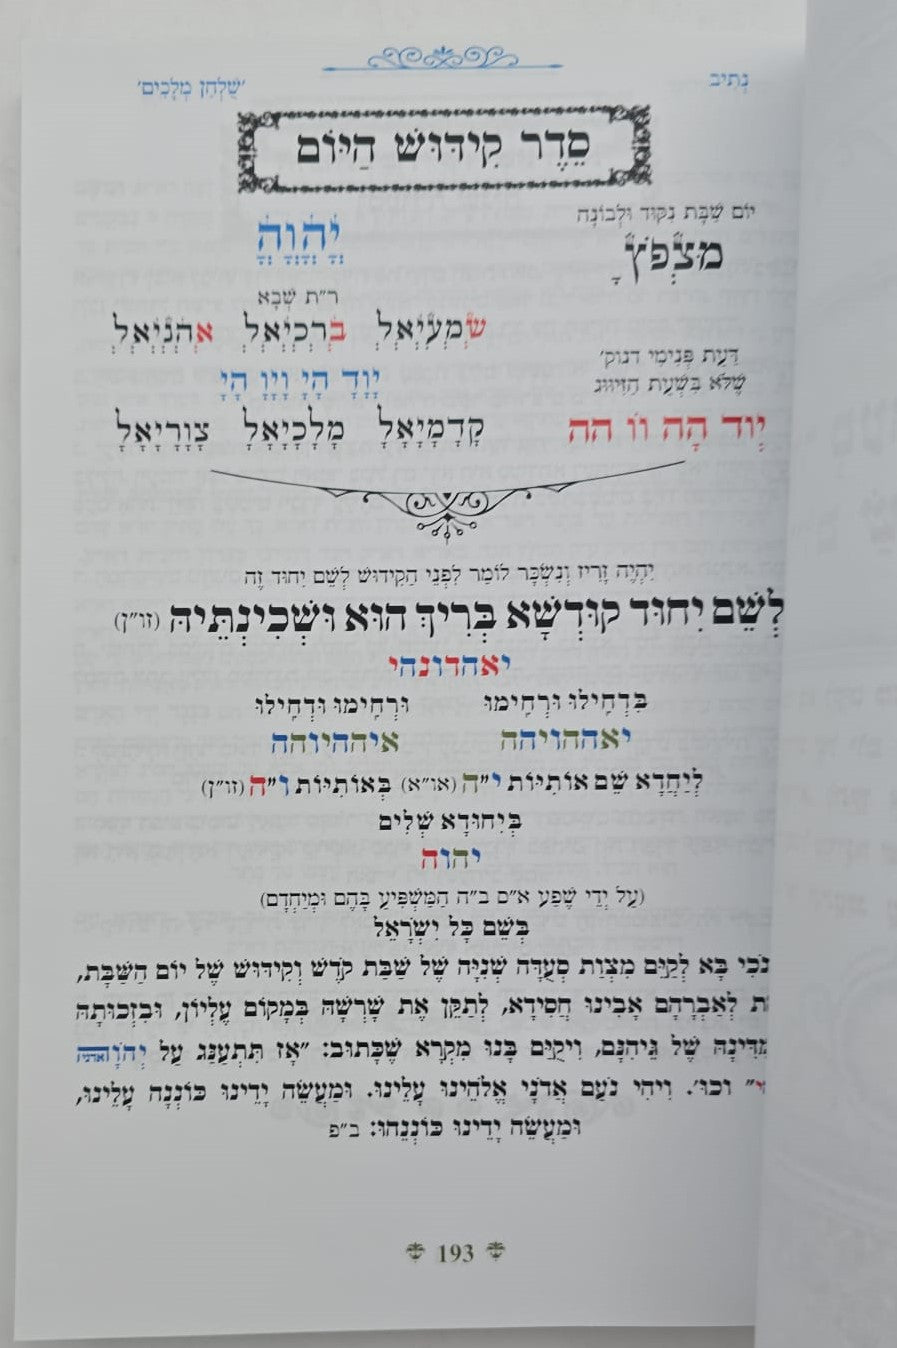 נְתִיב 'שֻׁלְחַן מְלָכִים'
סֵדֶר קִידּוּשׁ הַיּוֹם
יוֹם שַׁבָּת נִקּוּד וּלְבוּנָה
מצפץ
יהוה
ר״ת שְׁבָא
שמעיאל ברכיאל אהניאל
דַּעַת פְּנִימִי דנוק'
שֶׁלֹּא בִּשְׁעַת הַזִּיוּוּג
יָוָדָ הָיָ וָיָוָ הָיָ
יוד הה וו הה
קָדָמָיָאָלָ מָלָכָיָאָלָ צָוָרָיָאָלָ
יִהְיֶה זָרִיז וְנִשְׂכָּר לוֹמַר לִפְנֵי הַקִידוּשׁ לְשֵׁם יִחוּד זֶה
לְשֵׁם יִחוּד קוּדְשָׁא בְּרִיךְ הוּא וּשְׁכִינְתֵּיהּ (זו״ן)
יאהדונהי
בִּדְחִילוּ וּרְחִימוּ וּרְחִימוּ וּדְחִילוּ
יאההויהה איההיוהה
לְיַחֲדָא שֵׁם אוֹתִיּוֹת י״ה (או״א) בְּאוֹתִיּוֹת ו״ה (זו״ן)
בְּיִחוּדָא שְׁלִים
יהוה
(עַל יְדֵי שֶׁפַע א״ס ב״ה הַמַּשְׁפִּיעַ בָּהֶם וּמְיַחְדָם)
בְּשֵׁם כָּל יִשְׂרָאֵל
נֹכִי בָּא לְקַיֵּם מִצְוַת סְעֻדָּה שְׁנִיָּה שֶׁל שַׁבַּת קֹדֶשׁ וְקִידּוּשׁ שֶׁל יוֹם הַשַּׁבָּת,
ת לְאַבְרָהָם אָבִינוּ חֲסִידָא, לְתַקֵּן אֶת שָׁרְשָׁהּ בְּמָקוֹם עֶלְיוֹן, וּבִזְכוּתָהּ
מִדִּינָהּ שֶׁל גֵּיהִנָּם, וִיקֻיַּם בָּנוּ מִקְרָא שֶׁכָּתוּב: "אָז תִּתְעַנַּג עַל יְהֹוָה
י" וכו'. וִיהִי נֹעַם אֲדֹנָי אֱלֹהֵינוּ עָלֵינוּ. וּמַעֲשֵׂה יָדֵינוּ כּוֹנְנָה עָלֵינוּ,
וּמַעֲשֵׂה יָדֵינוּ כּוֹנְנֵהוּ: ב״פ
193